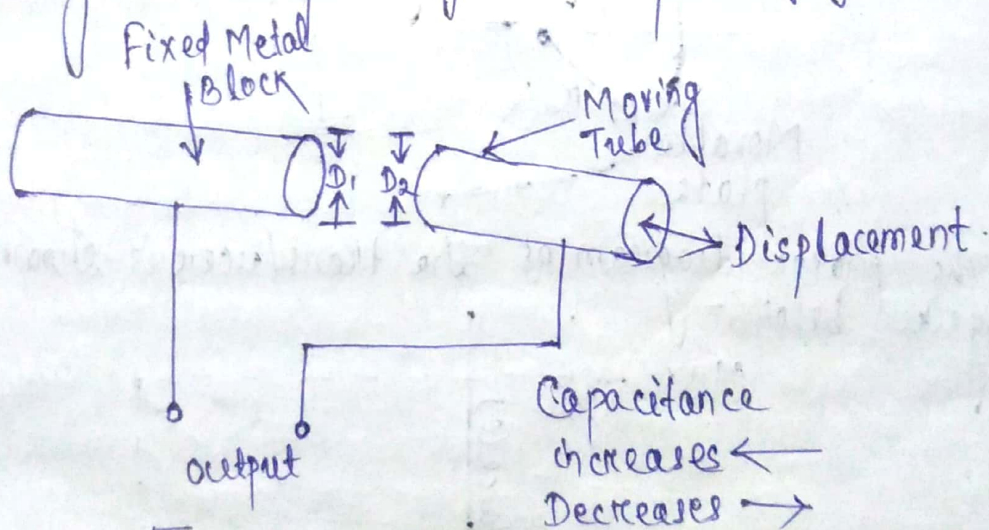 Fixed Metal
Block
Moving
Tube
D1 D2
Displacement
output
Capacitance
increases ←
Decreases →